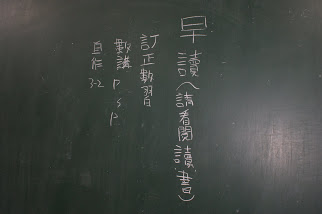 早讀(請看閱讀書)
訂正數習
數講 P5P
自修 3-2